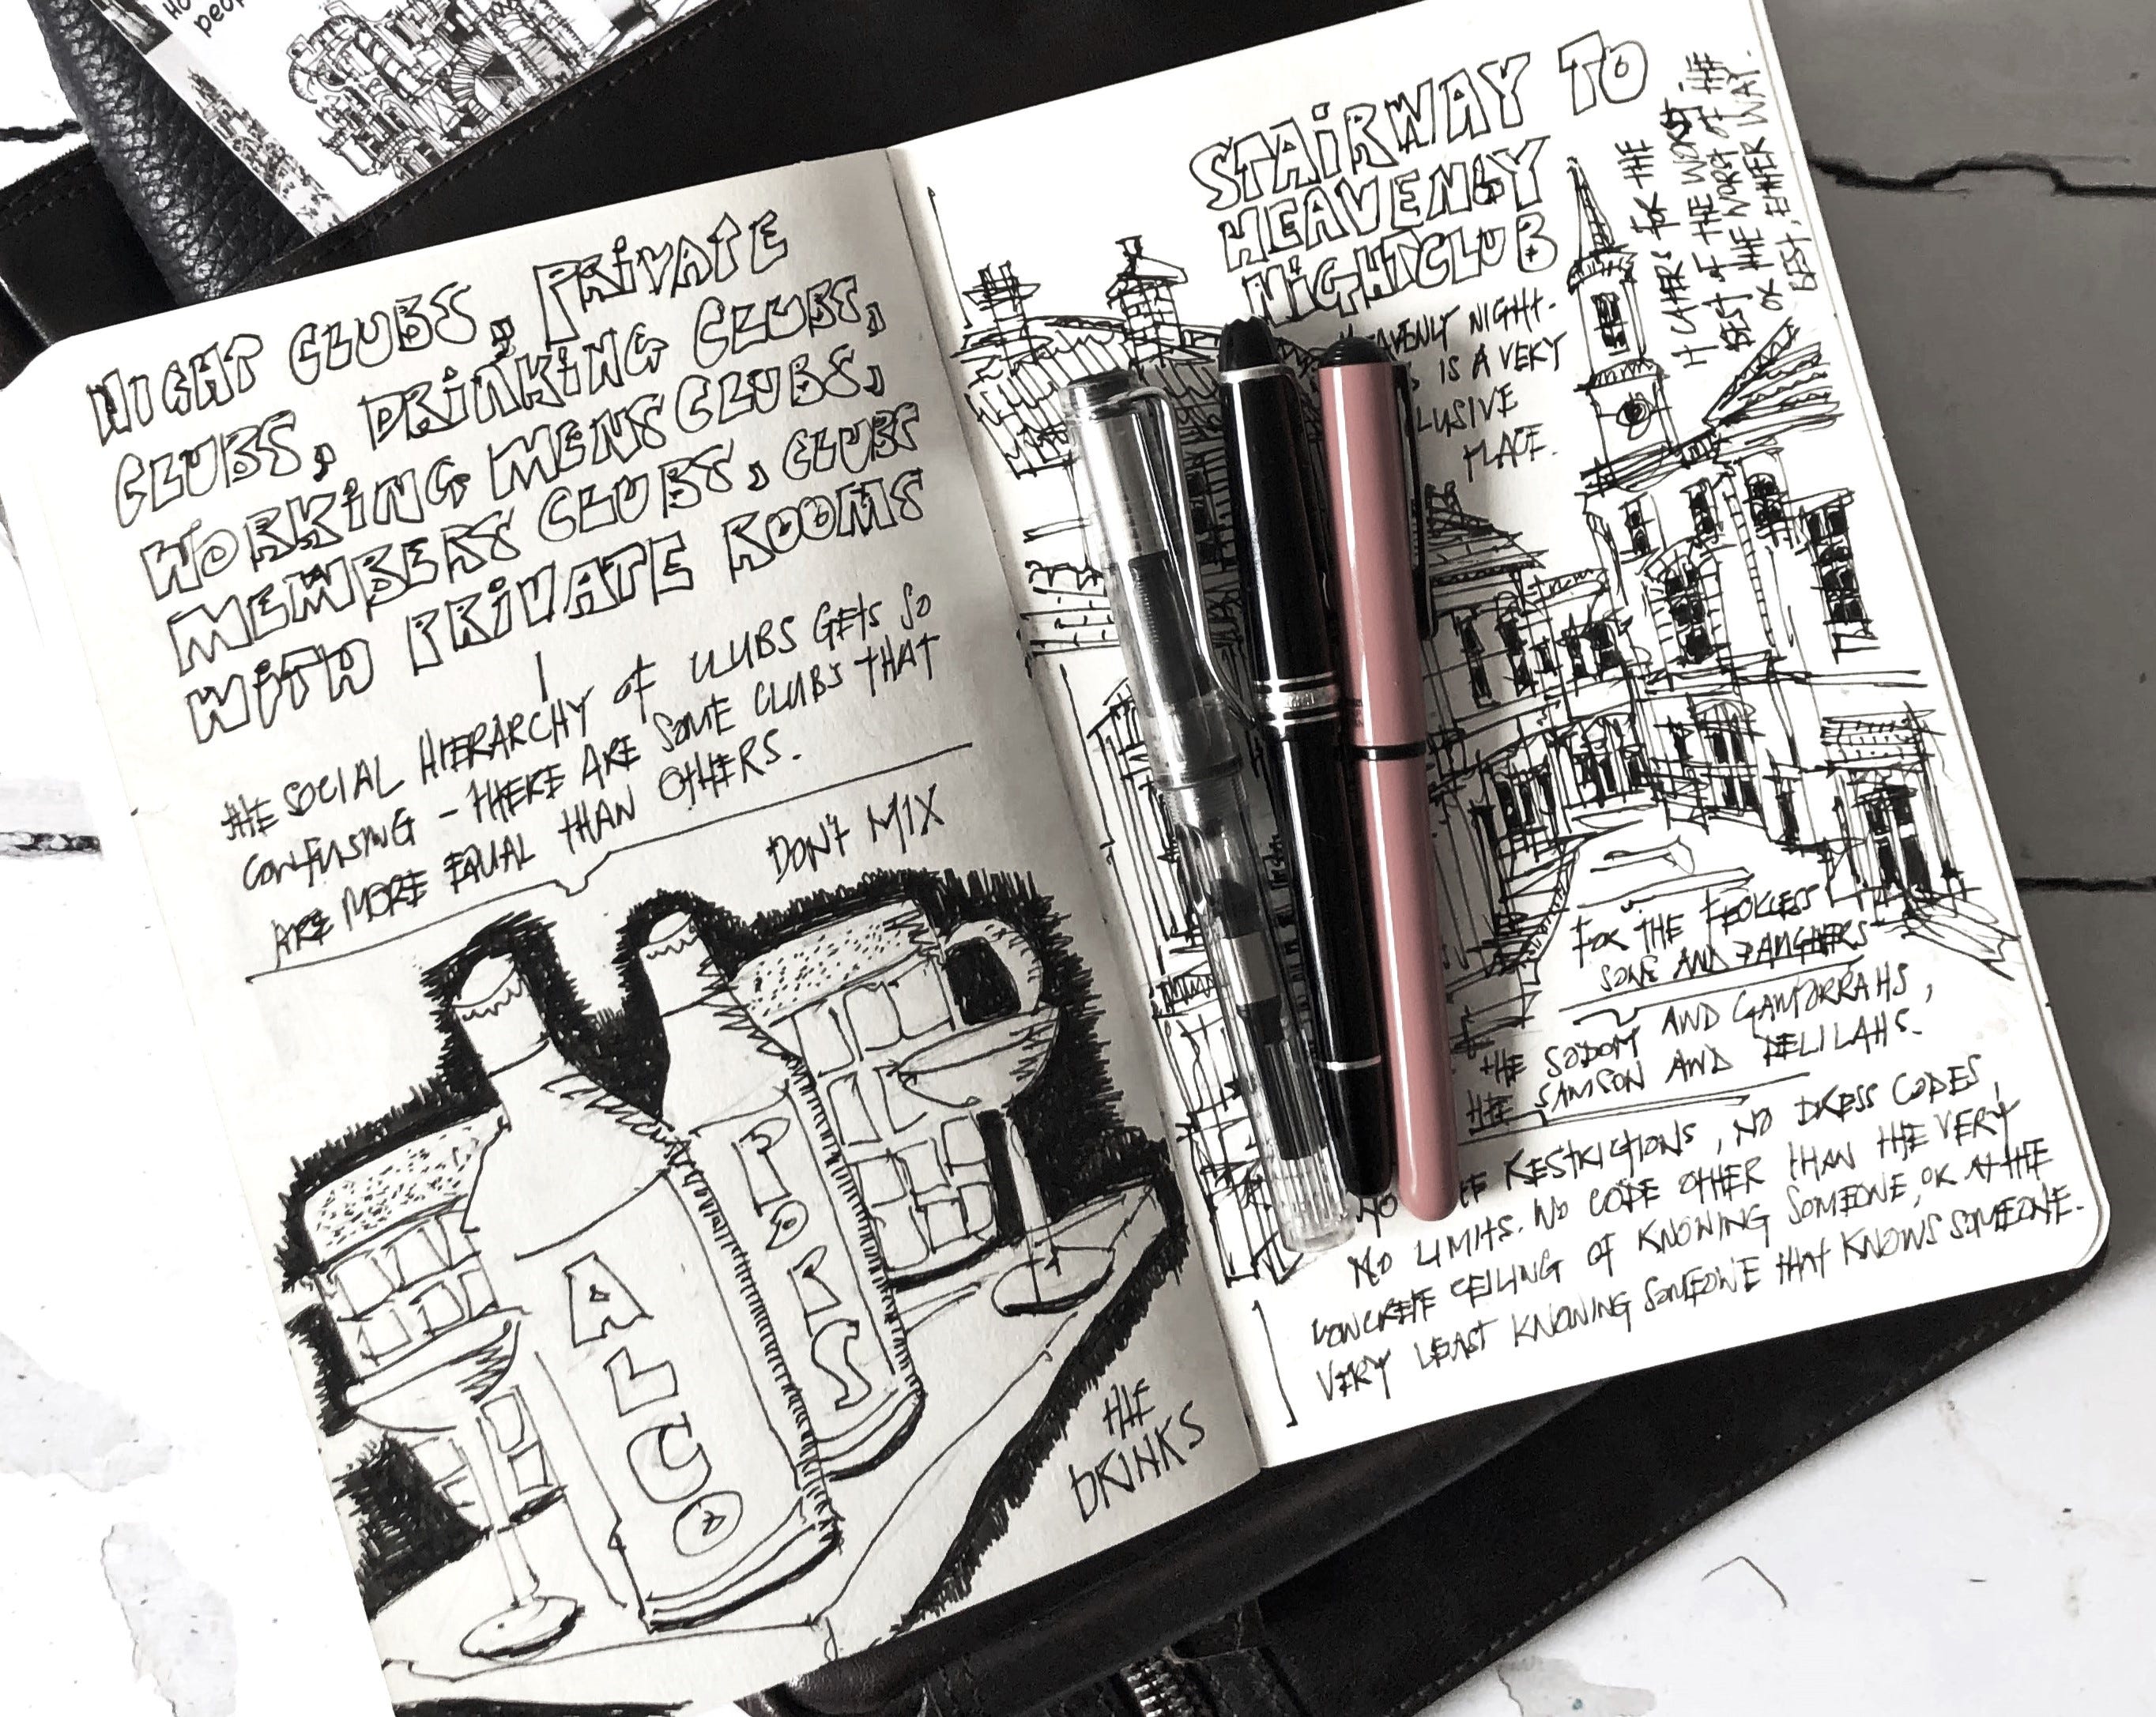 HO
peop
NIGHT CLUBS, PRIVATE
CLUBS, DRINKING CLUBS,
WORKING MENS CLUBS,
MEMBERS CLUBS, CLUBS
WITH PRIVATE ROOMS
THE SOCIAL HIERARCHY OF CLUBS GETS SO
CONFUSING - THERE ARE SOME CLUBS THAT
ARE MORE EQUAL THAN OTHERS.
DON'T MIX
ALCO
POPS
THE
DRINKS
STAIRWAY TO
HEAVENLY
NIGHTCLUB
HEAVENLY NIGHT-
IS A VERY
LUSIVE
PLACE.
IT CATERS FOR THE
BEST OF THE WORST
OR THE WORST OF THE
BEST, EITHER WAY.
FOR THE FECKLESS
SONS AND DAUGHTERS
THE SODOM AND GAMORRAHS,
THE SAMSON AND DELILAHS.
NO RESTRICTIONS, NO DRESS CODES,
NO LIMITS. NO CODE OTHER THAN THE VERY
CONCRETE CEILING OF KNOWING SOMEONE, OR AT THE
VERY LEAST KNOWING SOMEONE THAT KNOWS SOMEONE.